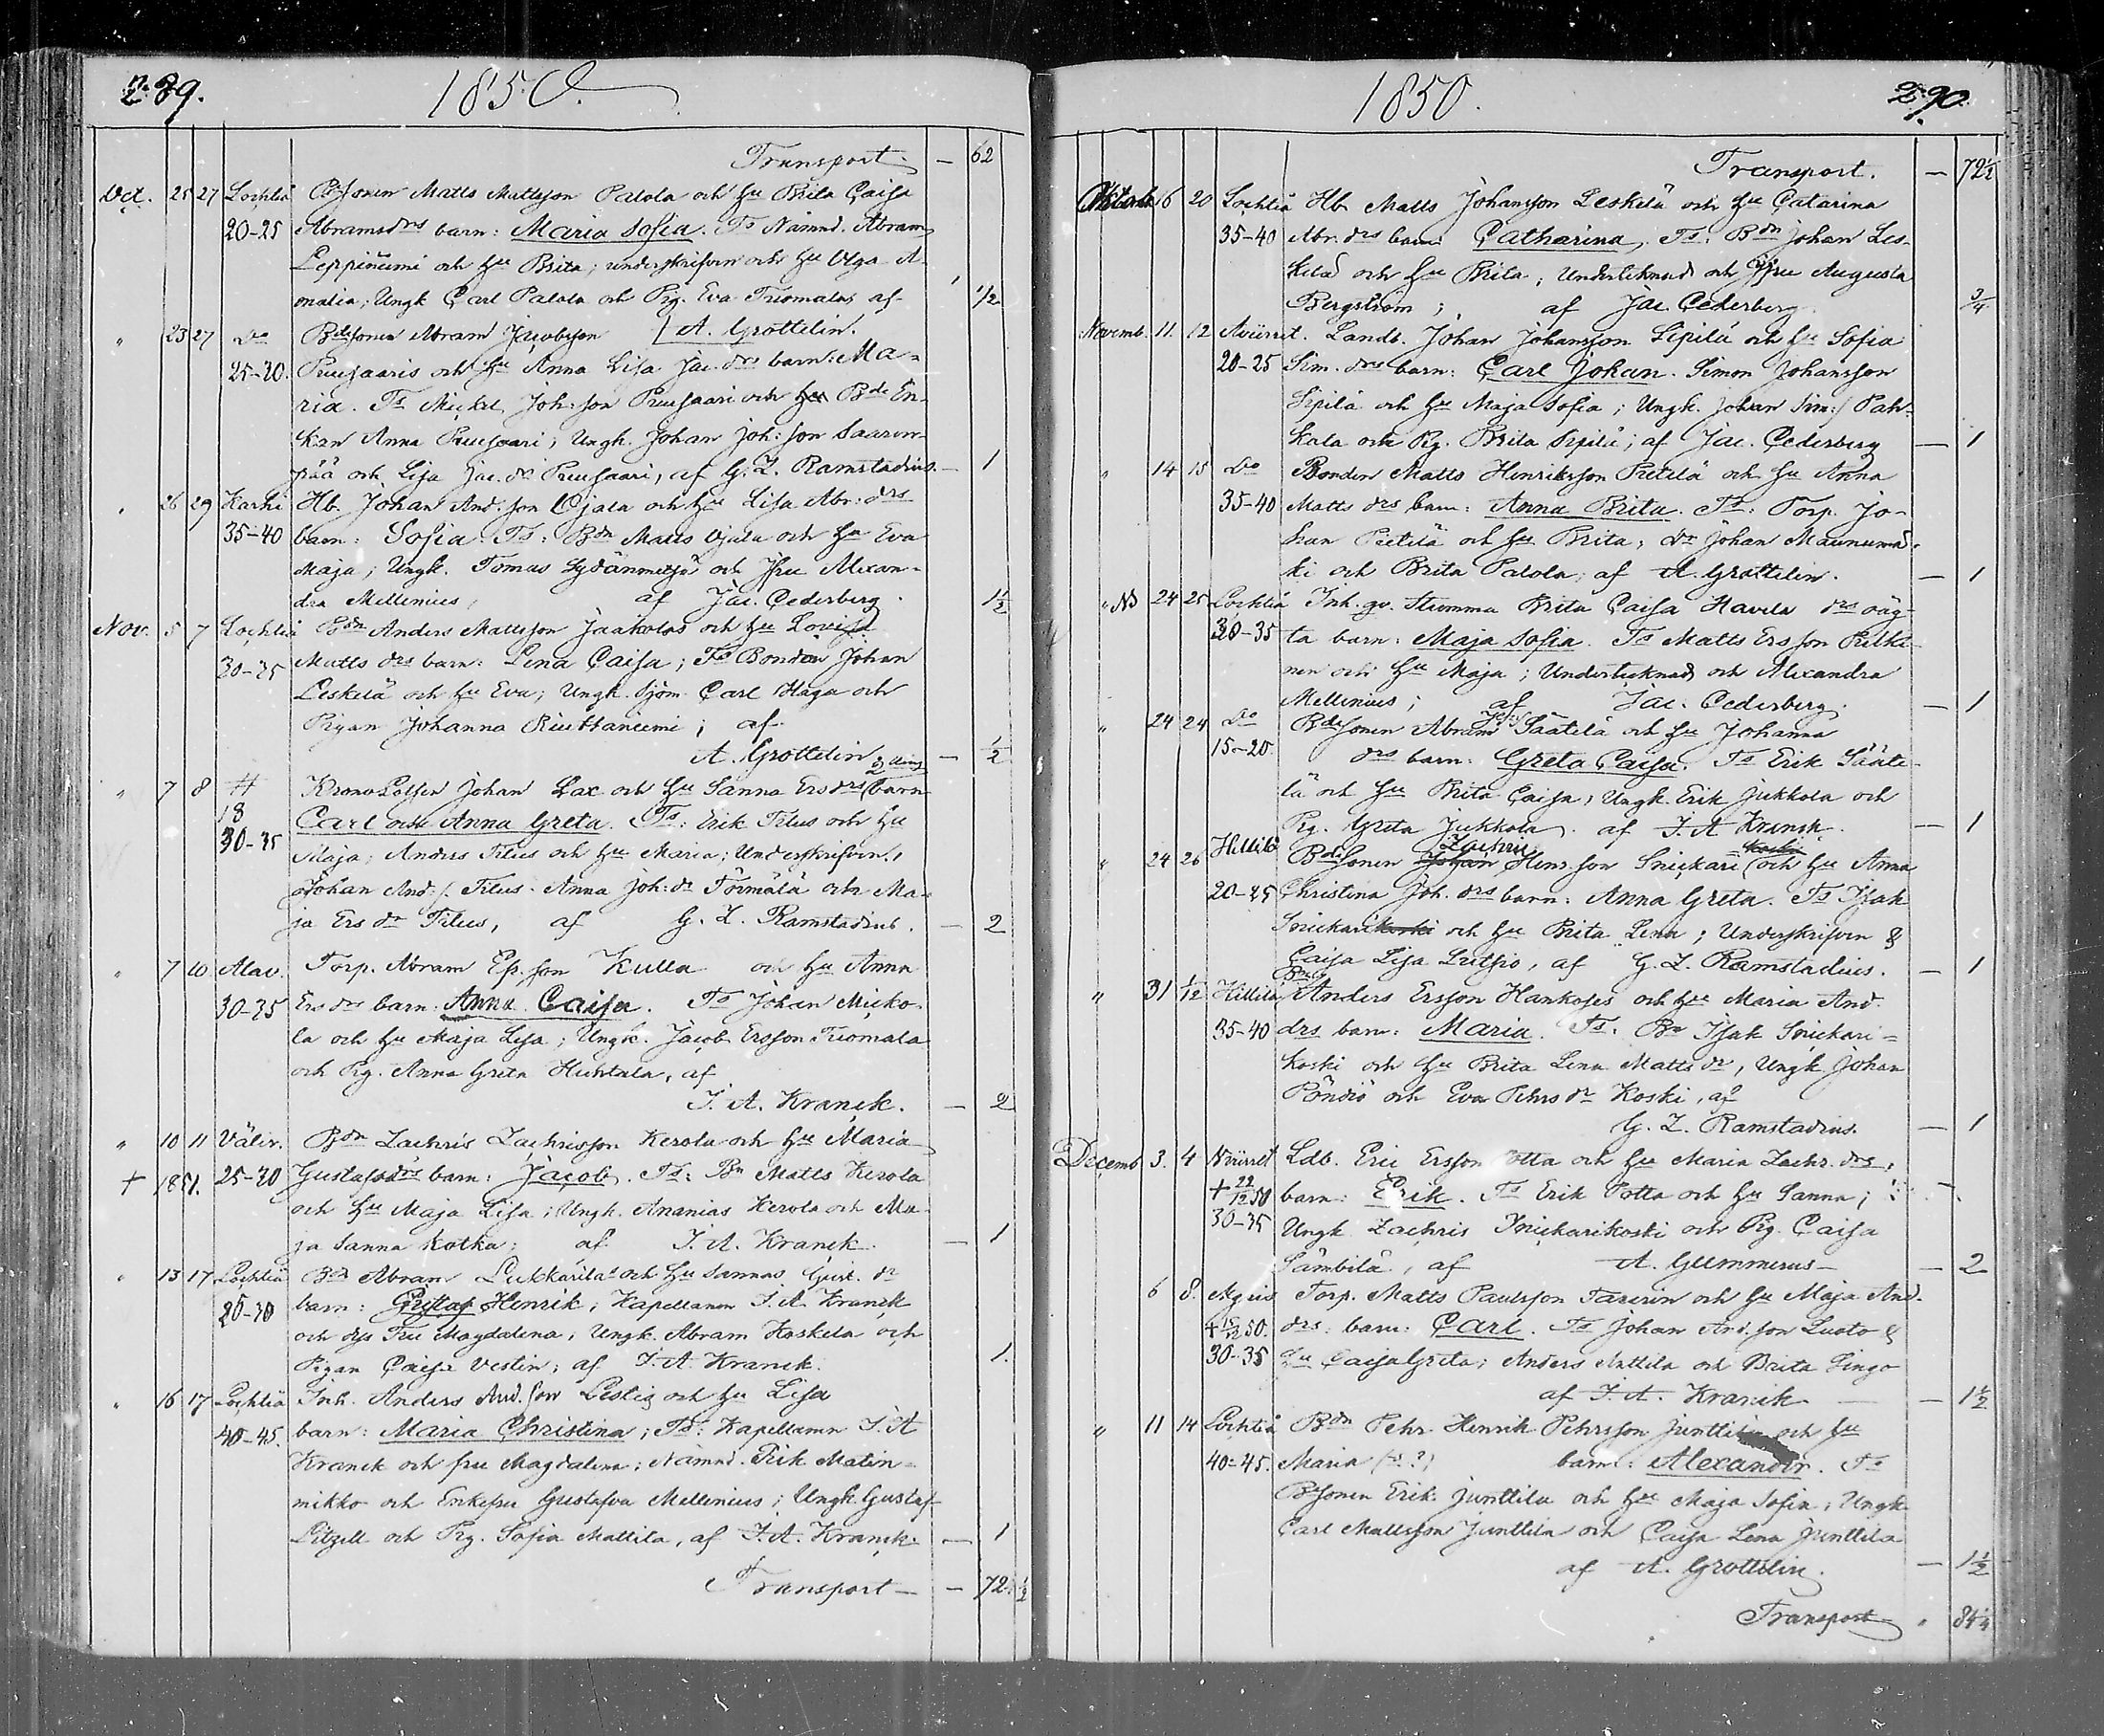 289.
1850.
Transport. — 62
Oct. 25 27 Lochteå Bdsonen Matts Mattsson Palola och hu Brita Caisa
20-25 Abramsdrs barn: Maria Sofia. Ts Nämnd. Abram
Leppiniemi och hu Brita; underskrifven och hu Olga A-
malia; Ungk Carl Palola och Pig. Eva Tuomala, af 1/2
" 23 27 Do Bdesonen Abram Jacobsson / A. Grottelin.
25-30. Puusaaris och hu Anna Lisa Jac. drs barn: Ma-
ria. Ts Mickel Joh: son Puusaari och hu Bde En-
kan Anna Puusaari; Ungk. Johan Joh: son Saaren-
pää och Lisa Jac. dr Puusaari, af G. Z. Ramstadius. — 1
" 26 29 Karhi Hb. Johan And. son Ojala och hu Lisa Abr: drs
35-40 barn: Sofia. Ts: Bdn Matts Ojala och hu Eva
Maja; Ungk. Tomas Sydänmetsä och Jfru Alexan-
dra Mellenius, af Jac. Cederberg. 1 1/2
Nov. 5 7 Lochteå Bdn Anders Mattsson Jaakolas och hu Lovisa
30-35 Matts drs barn: Lena Caisa; Ts Bonden Johan
Leskelä och hu Eva; Ungk. Sjöm. Carl Haga och
Pigan Johanna Riuttaniemi; af
A. Grottelin — 1/2
" 7 8 # Krono Lotsen Johan Lax och hu Sanna Ersdrs barn
18 Carl och Anna Greta. Ts: Erik Titus och hu
30-35 Maja; Anders Titus och hu Maria; Underskrifven,
Johan And: s. Titus. Anna Joh: dr Törmälä och Ma-
ja Ers dr Titus, af G. Z. Ramstadius. — 2
" 7 10 Alav. Torp. Abram Es. son Kulla och hu Anna
30-35 Ers drs barn: Anna Caisa. Ts Johan Micko-
la och hu Maja Lisa; Ungk. Jacob Ersson Tuomala
och Pig. Anna Greta Huhtala, af
I. A. Kranck. — 2
" 10 11 Välir. Bdn Zachris Zachrisson Kerola och hu Maria
+ 1851. 25-30 Gustafsdrs barn: Jacob. Ts: Bn Matts Kerola
och hu Maja Lisa; Ungk. Ananias Kerola och Ma-
ja Sanna Kotka; af I. A. Kranck. — 1
" 13 17 Lochteå Bdn Abram Lukkarila och hu Sannas Gust. dr
25-30 barn: Gustaf Henrik; Kapellanen I. A. Kranck
och dess Fru Magdalena; Ungk. Abram Koskela och
Pigan Caisa Vestin; af I. A. Kranck. 1.
" 16 17 Lochteå Inh. Anders And. son Lestig och hu Lisa
40-45. barn: Maria Christina; Ts: Kapellanen I. A
Kranck och fru Magdalena; Nämnd. Erik Matin-
mikko och Enkefru Gustafva Mellenius; Ungk. Gustaf
Litzell och Pig. Sofia Mattila, af I. A. Kranck — 1
Transport — — 72 1/2
1850.
290.
Transport. — 72 1/2
Octob. 16 20 Lochteå Hb. Matts Johansson Leskelä och hu Catarina
35-40 Abr. drs barn: Catharina. Ts: Bdn Johan Les-
kelä och hu Brita; Underteknad och Jfru Augusta
Bergström; af Jac. Cederberg 3/4
Novemb. 11. 12 Aviirret. Landb. Johan Johansson Sipilä och hu Sofia
20-25 Sim. drs barn: Carl Johan. Simon Johansson
Sipilä och hu Maja Sofia; Ungk. Johan Sim: s Pah-
kala och Pig. Brita Sipilä; af Jac. Cederberg — 1
" 14 15 Do Bonden Matts Henriksson Pietilä och hu Anna
35-40 Matts drs barn: Anna Brita. Ts: Torp. Jo-
han Pietilä och hu Brita; dr Johan Maunumä-
ki och Brita Palola; af A. Grottelin. — 1
" 24 25 Lochteå Inh. qv. Stumma Brita Caisa Havela drs oäg-
30-35 ta barn: Maja Sofia. Ts Matts Ersson Pulkki-
nen och hu Maja; Undertecknad och Alexandra
Mellenius; af Jac. Cederberg. — 1
" 24 24 Do Bdesonen Abram Säätelä och hu Johanna
15-20. drs barn: Greta Caisa. Ts Erik Sääte-
lä och hu Brita Caisa; Ungk. Erik Jukkola och
Pig. Greta Jukkola. af I. A Kranck. — 1
" 24 26 Hillilä Bdesonen Johan Zachris Henr. son Snickari-koski och hu Anna
20-25 Christina Joh. drs barn: Anna Greta. Ts Isak
Snickarikoski och hu Brita Lena; Underskrifven &
Caisa Lisa Luthio, af G. Z. Ramstadius. — 1
" 31 1/12 Hillilä Bn Anders Ersson Hankoses och hu Maria And.
35-40 drs. barn: Maria. Ts: Bn Isak Snickari-
koski och hu Brita Lena Matts dr, Ungk. Johan
Pöndiö och Eva Pehrs dr Koski, af
G. Z. Ramstadius. — 1
Decemb 3. 4 Aviirret Ldb. Eric Ersson Potta och hu Maria Zachr. drs,
+ 22/12 50 barn: Erik. Ts Erik Potta och hu Sanna;
30-35 Ungk Zachris Snickarikoski och Pig. Caisa
Sämbilä, af A. Gummerus — 2
6 8. Torp. Matts Paulsson Taxerin och hu Maja And.
+ 15/12 50. drs. barn: Carl. Ts Johan And. son Luoto &
30-35 hu Caisa Greta; Anders Anttila och Brita Pingo
af I. A. Kranck — 1 1/2
" 11 14 Lochteå Bdn Pehr Henrik Pehrsson Junttila och hu
40-45. Maria (?) barn: Alexander. Ts
Bsonen Erik Junttila och hu Maja Sofia; Ungk
Carl Mattsson Junttila och Caisa Lena Junttila
af A. Grottelin. — 1 1/2
Transport "